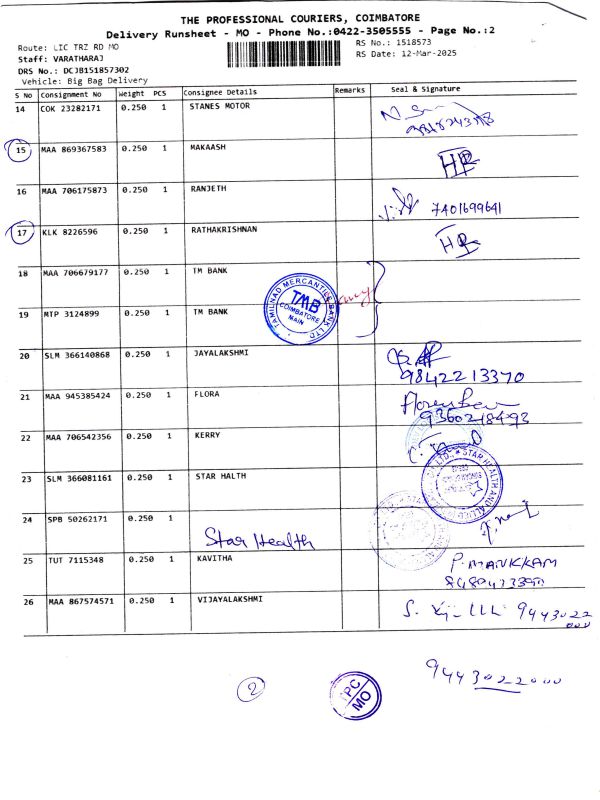 THE PROFESSIONAL COURIERS, COIMBATORE
Delivery Runsheet - MO - Phone No.:0422-3505555 - Page No.:2
Route: LIC TRZ RD MO
RS No.: 1518573
Staff: VARATHARAJ
RS Date: 12-Mar-2025
DRS No.: DCJB151857302
Vehicle: Big Bag Delivery
S No Consignment No Weight PCS Consignee Details Remarks Seal & Signature
14 COK 23282171 0.250 1 STANES MOTOR
15 MAA 869367583 0.250 1 MAKAASH
16 MAA 706175873 0.250 1 RANJETH 7401699641
17 KLK 8226596 0.250 1 RATHAKRISHNAN
18 MAA 706679177 0.250 1 TM BANK
TAMILNAD MERCANTILE BANK LTD
TMB
COIMBATORE
MAIN
19 MTP 3124899 0.250 1 TM BANK
20 SLM 366140868 0.250 1 JAYALAKSHMI
9842213370
21 MAA 945385424 0.250 1 FLORA
9360218493
22 MAA 706542356 0.250 1 KERRY
23 SLM 366081161 0.250 1 STAR HALTH
STAR HEALTH AND
24 SPB 50262171 0.250 1
Star Health
25 TUT 7115348 0.250 1 KAVITHA P. MANKKAM
26 MAA 867574571 0.250 1 VIJAYALAKSHMI 9443022
000
9443022000
2
PC
MO